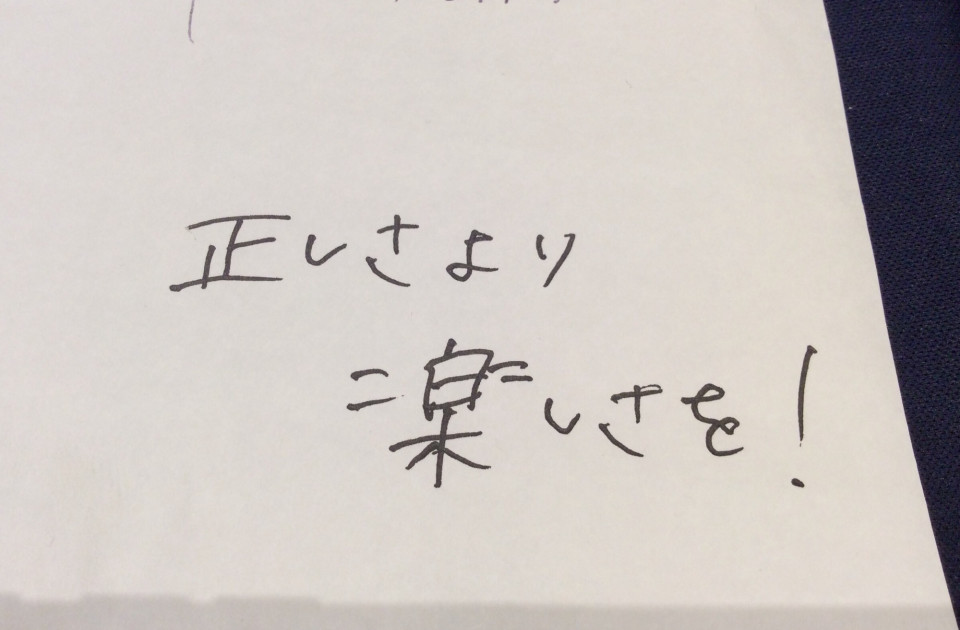 正しさより
楽しさを!